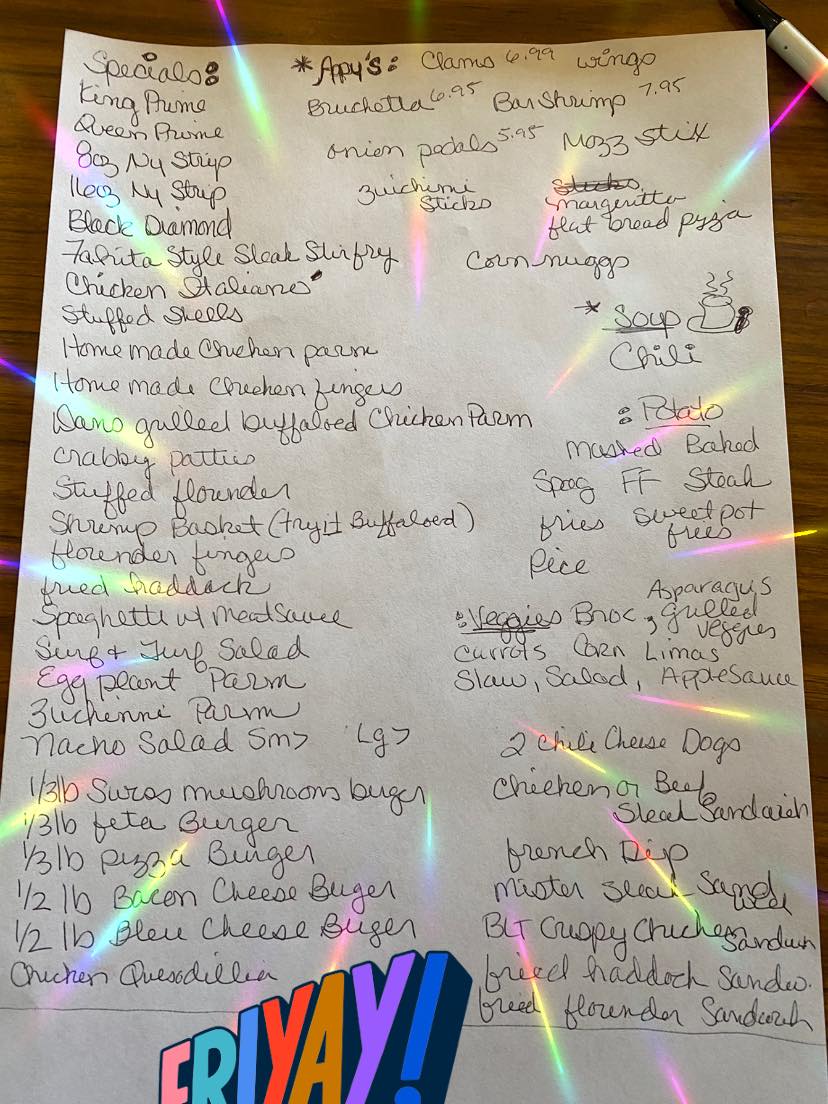 Specials:
King Prime
Queen Prime
8oz Ny Strip
16oz Ny Strip
Black Diamond
Fahita Style Steak Stirfry
Chicken Italiano
Stuffed Shells
Home made Chicken parm
Home made Chicken fingers
Dans grilled buffaloed Chicken Parm
Crabby patties
Stuffed flounder
Shrimp Basket (try it Buffaloed)
flounder fingers
fried haddock
Spaghetti w/ Meat Sauce
Surf & Turf Salad
Egg plant Parm
Zuchinni Parm
Nacho Salad Sm> Lg>
1/3lb Swiss mushrooms burger
1/3lb feta Burger
1/3 lb pizza Burger
1/2 lb Bacon Cheese Buger
1/2 lb Bleu Cheese Buger
Chicken Quesodillia
* Appy's: Clams 6.99 wings
Bruchetta 6.95 Bar Shrimp 7.95
onion pedals 5.95 Mozz Stix
Zuichinni Sticks
margeritta
flat bread pizza
Corn nuggs
* Soup
Chili
: Potato
mashed Baked
Spag FF Steak
fries Sweet pot
fries
Rice
: Veggies Broc, Asparagus
grilled
veggies
Carrots Corn Limas
Slaw, Salad, AppleSauce
2 Chili Cheese Dogs
Chicken or Beef
Steak Sandwich
french Dip
Mister Steak Sand
wich
BLT Crispy Chicken Sandwich
fried haddock Sandw.
fried flounder Sandwich
FRIYAY!